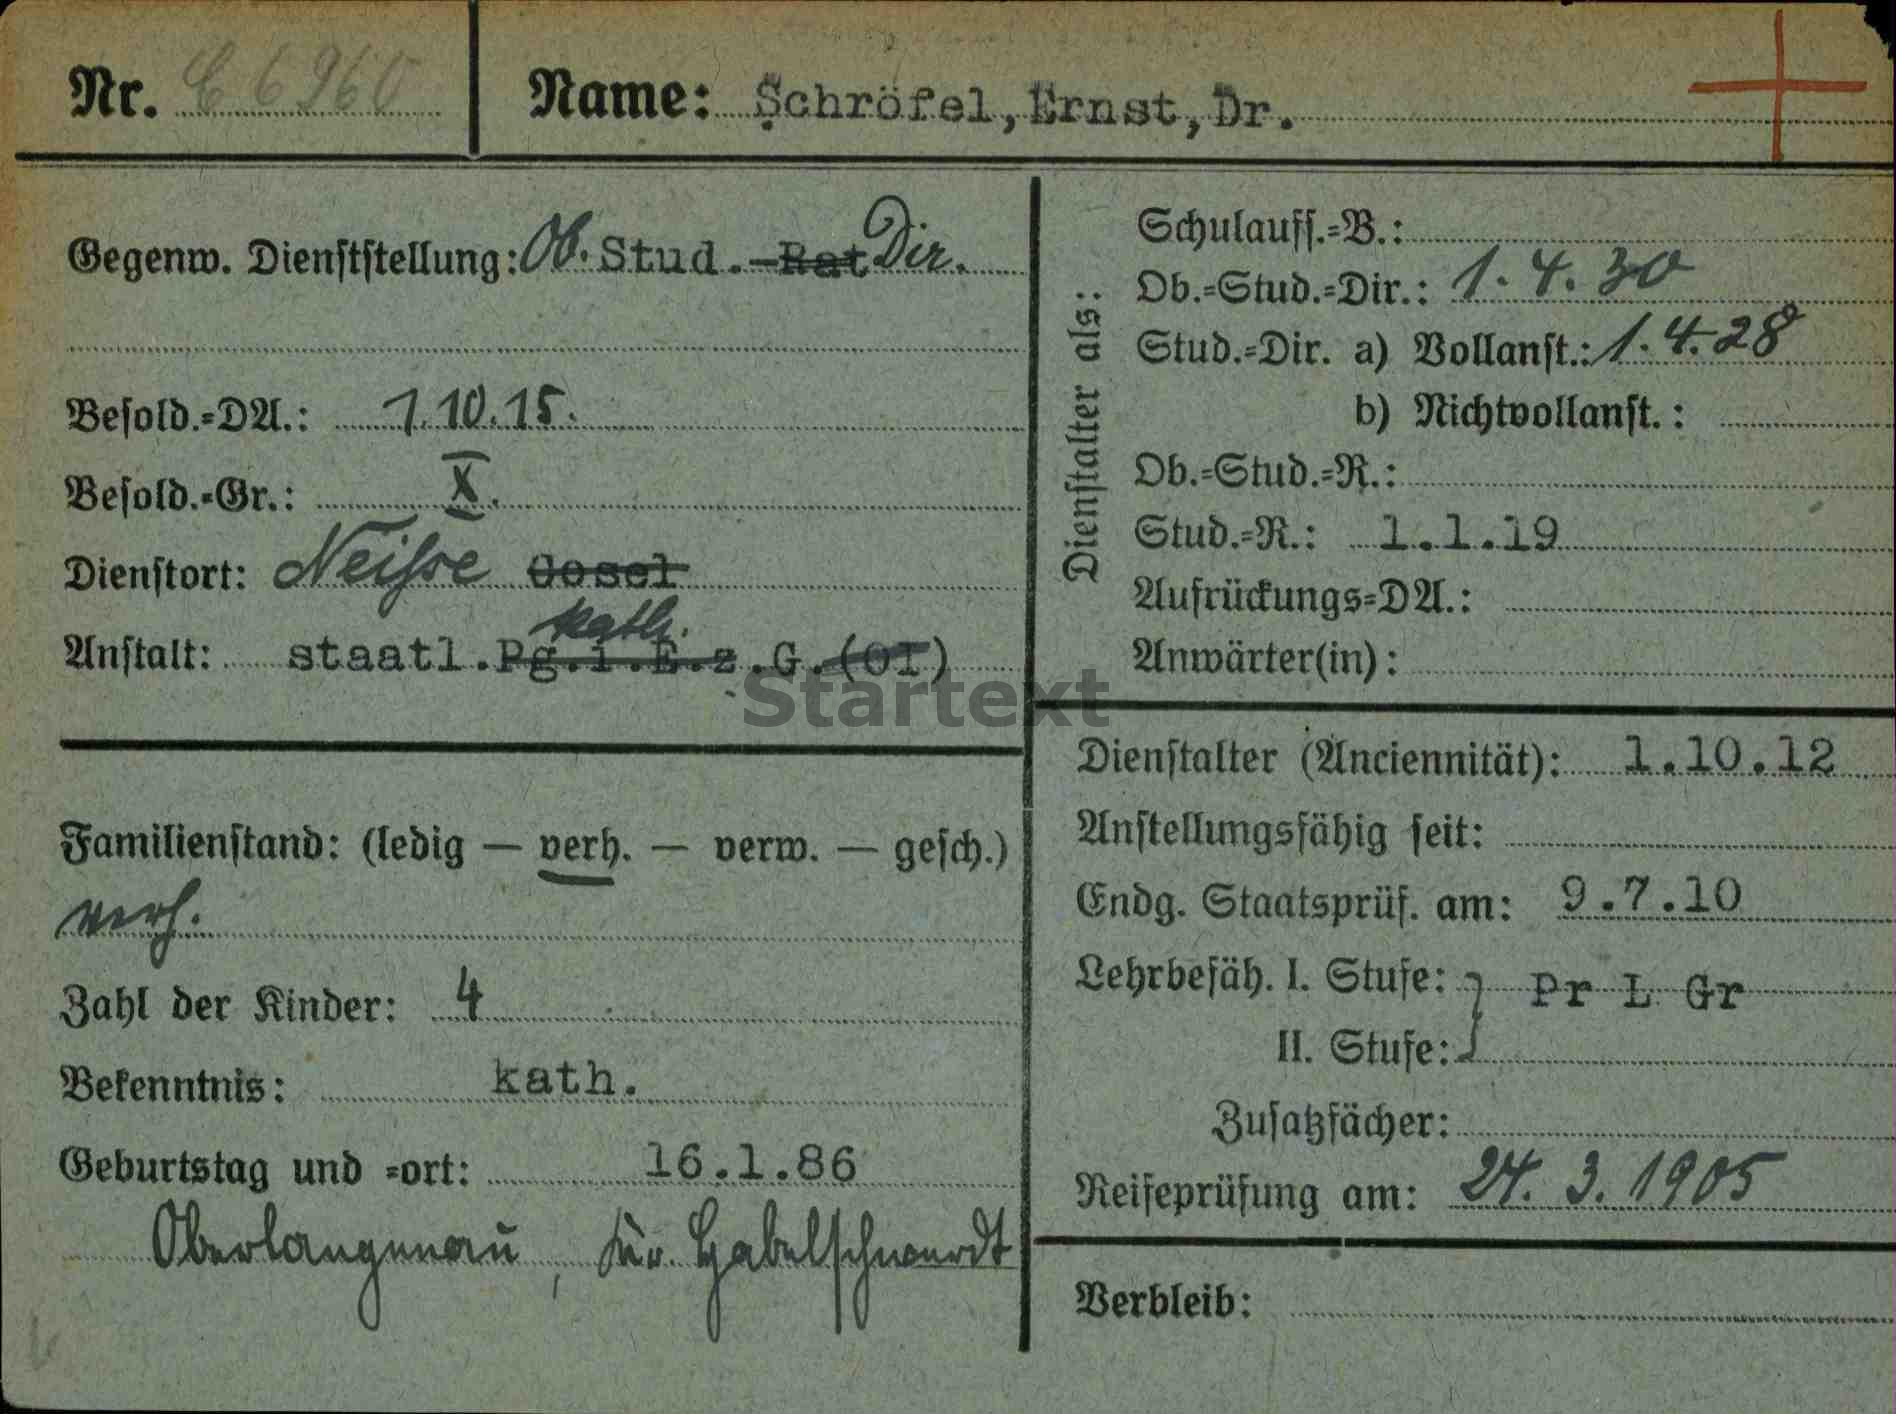 Nr. C 6960
Name: Schröfel, Ernst, Dr.
Gegenw. Dienststellung: Ob. Stud.-Rat Dir.
Besold.=DA.: 1.10.15.
Besold.=Gr.: X.
Dienstort: Neisse Cosel
kath.
Anstalt: staatl.Pg.i.E.z.G.(OI)
Familienstand: (ledig — verh. — verw. — gesch.)
verh.
Zahl der Kinder: 4
Bekenntnis: kath.
Geburtstag und =ort: 16.1.86
Oberlangenau, Kr. Habelschwerdt
Dienstalter als:
Schulaufs.=B.:
Ob.=Stud.=Dir.: 1.4.30
Stud.=Dir. a) Vollanst.: 1.4.28
b) Nichtvollanst.:
Ob.=Stud.=R.:
Stud.=R.: 1.1.19
Aufrückungs=DA.:
Anwärter(in):
Dienstalter (Anciennität): 1.10.12
Anstellungsfähig seit:
Endg. Staatsprüf. am: 9.7.10
Lehrbefäh. I. Stufe: } Pr L Gr
II. Stufe:
Zusatzfächer:
Reifeprüfung am: 24. 3. 1905
Verbleib:
Startext